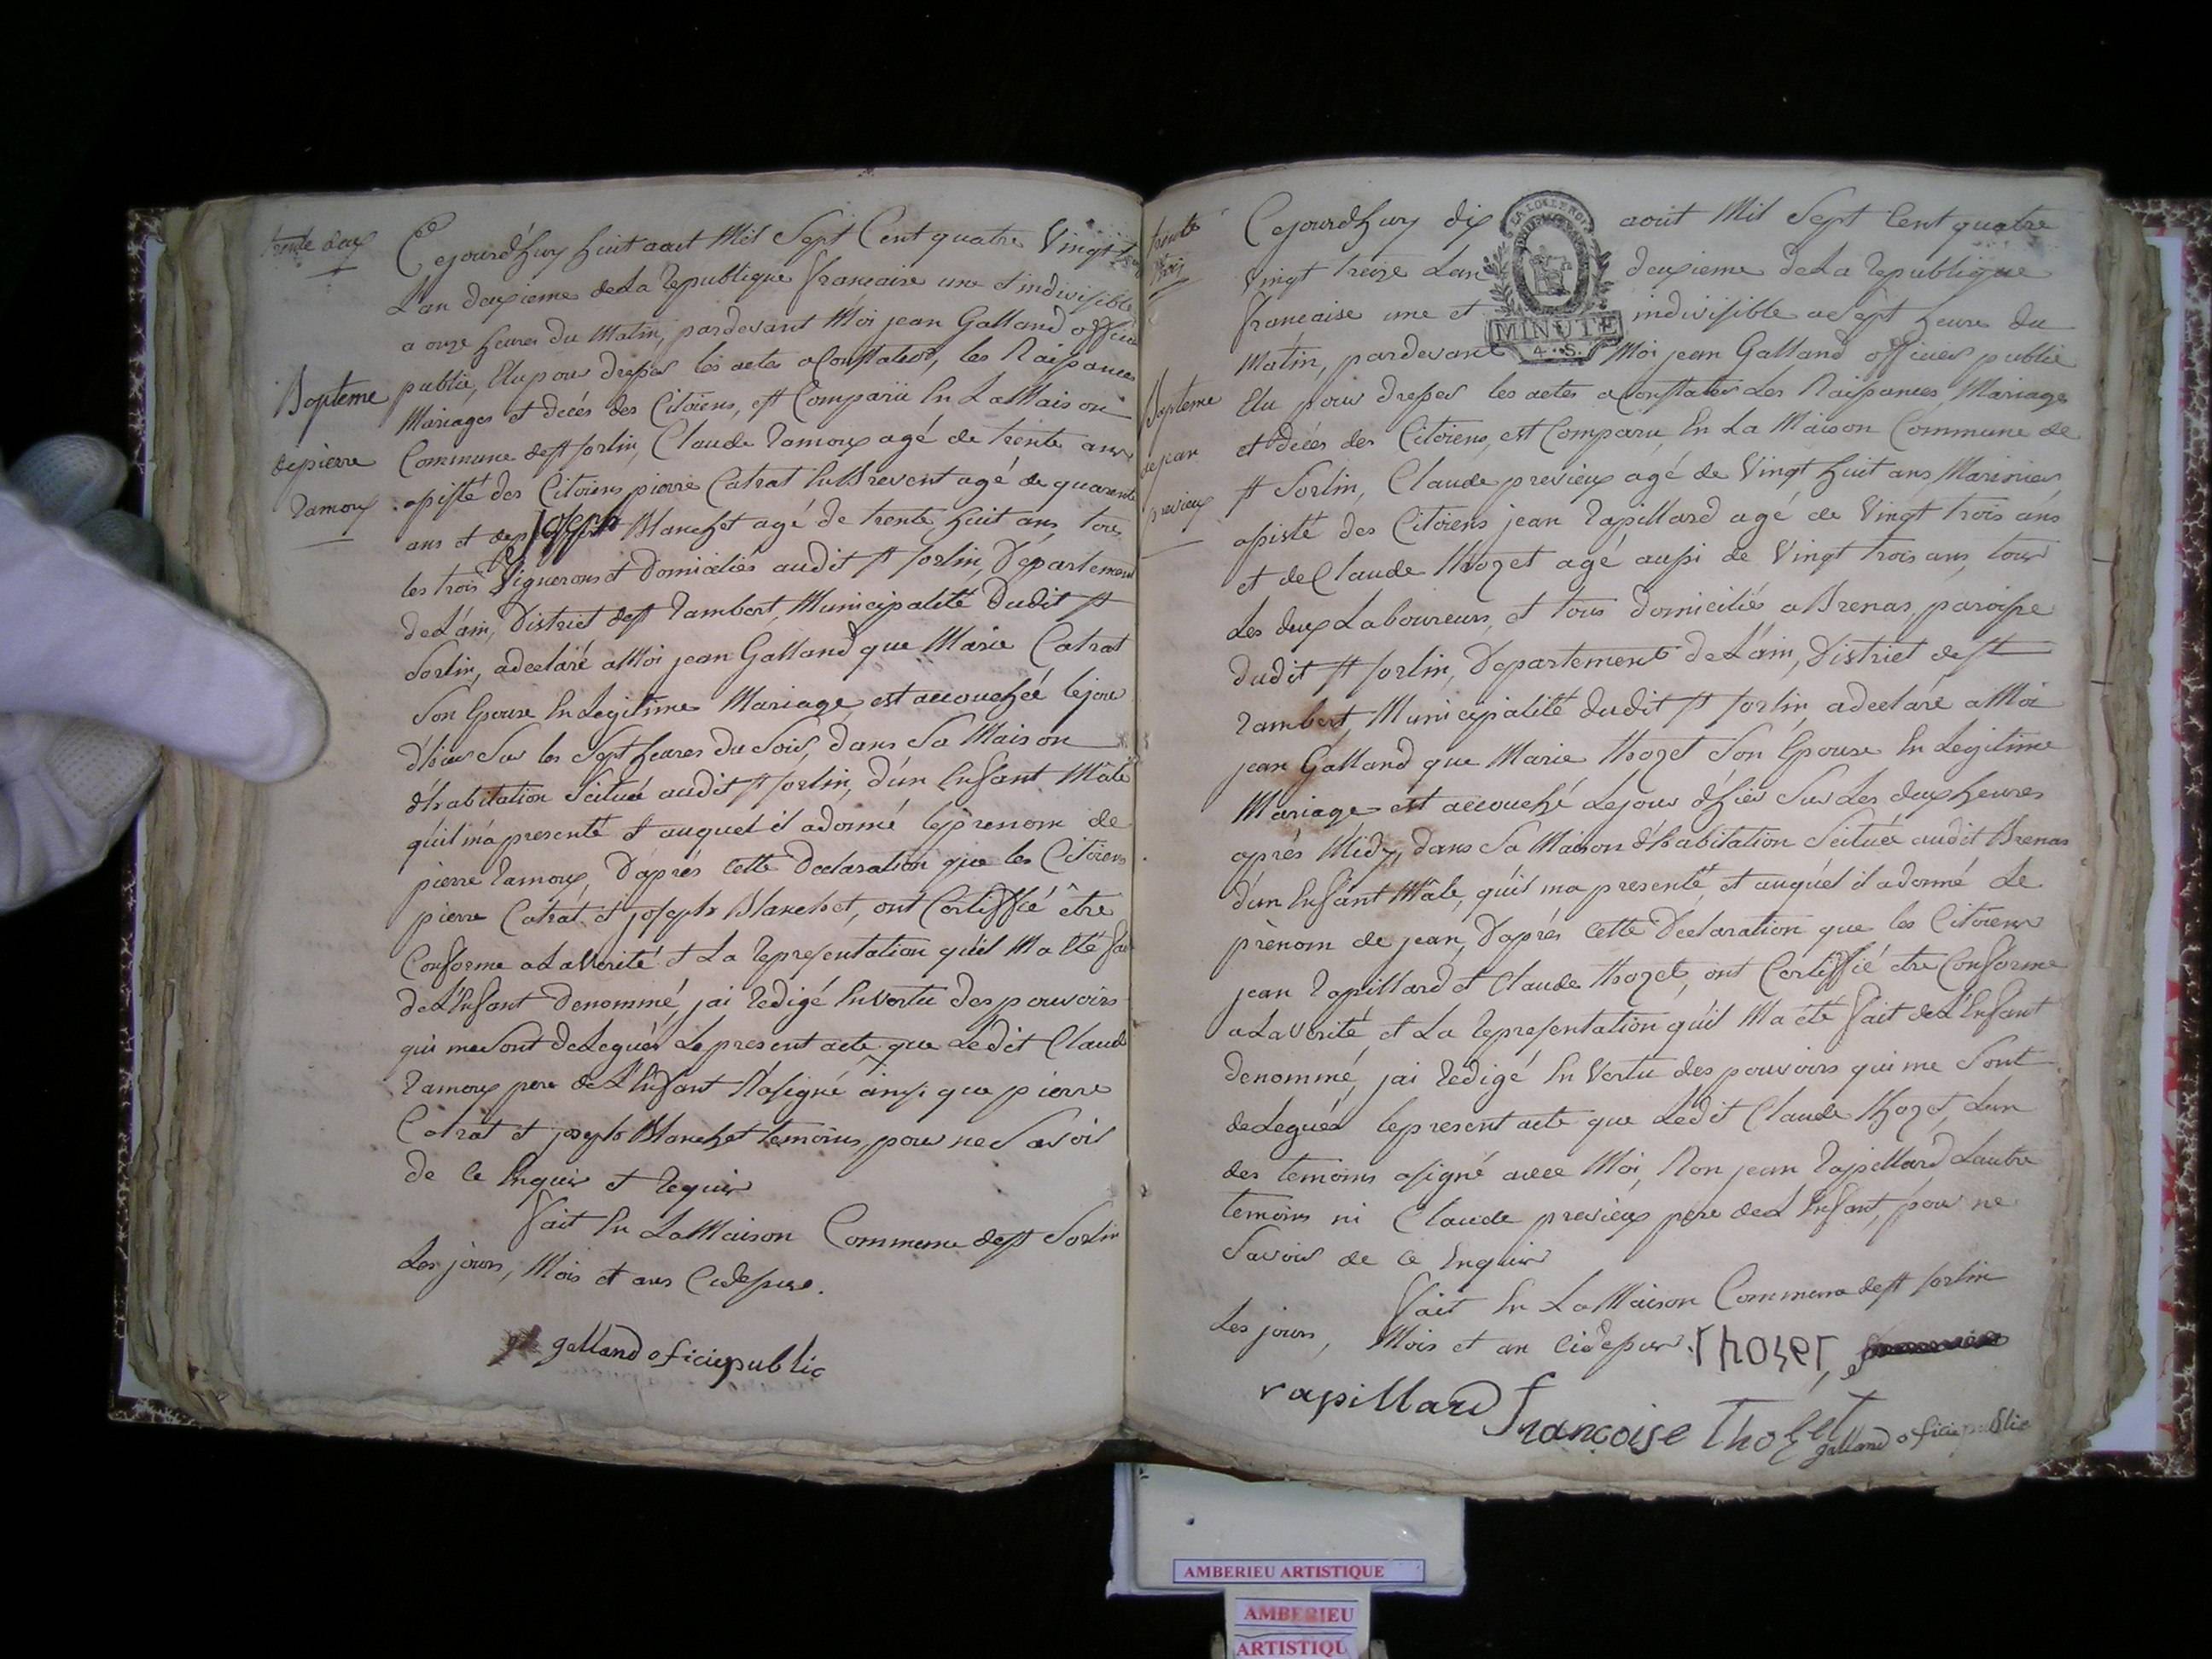 trente deux
Bapteme
de pierre
Ramoux
Cejourd'huy huit aout Mil Sept Cent quatre Vingt
L'an deuxieme dela Republique francaise une et indivisible
a onze heures du Matin, pardevant Moi jean Galland officier
public, Elu pour dresser les actes a Constater, les Naissances
Mariages et décés des Citoiens, est Comparu En La Maison
Commune de st sorlin, Claude Ramoux agé de trente ans
assisté des Citoiens pierre Catrat agé de quarente
ans et de joseph Blanchet agé de trente huit ans, tous
les trois Vignerons et Domiciliés audit st sorlin, Département
de L'ain, District de st Rambert, Municipalité Dudit st
Sorlin, adeclaré a Moi jean Galland que Marie Catrat
Son Epouse En Legitime Mariage, est accouchée le jour
d'hier Sur les Sept heures du Soir, dans Sa Maison
d'habitation Scituée audit st sorlin, d'un Enfant Mâle
qu'il m'a presenté et auquel il adonné le prenom de
pierre Ramoux, D'après cette Declaration que les Citoiens
pierre Catrat et joseph Blanchet, ont Certiffié être
Conforme a La Verité et La Representation qu'il Ma été fait
de L'Enfant denommé, jai Redigé En Vertu des pouvoirs
qui me Sont Delegués Le present acte que Ledit Claude
Ramoux pere de L'Enfant N'a signé ainsi que pierre
Catrat et joseph Blanchet temoins, pour ne Savoir
de ce Enquis et Requis
fait En La Maison Commune de st Sorlin
Les jours, Mois et ans Cidessus.
galland oficiepublic
trente
trois
Bapteme
de jean
previeux
Cejourdhuy dix aout Mil Sept Cent quatre
Vingt treize L'an deuxieme De La Republique
francaise une et indivisible a Sept heures du
Matin, pardevant Moi jean Galland officier public
Elu pour dresser les actes a Constater Les Naissances, Mariages
et Décés des Citoiens, est Comparu, En La Maison Commune de
st Sorlin, Claude previeux agé de Vingt huit ans Marinier
assisté des Citoiens jean Rapillard agé de Vingt trois ans
et de Claude thozet agé aussi de Vingt trois ans, tous
Les deux Laboureurs, et tous domiciliés a Brenas, paroisse
dudit st sorlin, Departement de L'ain, District de st
Rambert, Municipalité dudit st sorlin, adeclaré a Moi
jean Galland que Marie thozet Son Epouse En Legitime
Mariage est accouché Le jour d'hier Sur Les deux heures
après Midy, dans Sa Maison d'habitation Scituée audit Brenas
d'un Enfant Mâle, qu'il ma presenté et auquel il adonné Le
prènom de jean, D'après cette Déclaration que les Citoiens
jean Rapillard et Claude thozet, ont Certiffié etre Conforme
a La Verité, et La Representation qu'il Ma eté fait de L'Enfant
denommé, jai Redigé En Vertu des pouvoirs qui me Sont
delegués le present acte que Ledit Claude thozet, L'un
des temoins asigné avec Moi, Non jean Rapillard Lautre
temoins ni Claude previeux père de L'Enfant, pour ne
Savoir de ce Enquis
fait En La Maison Commune de st sorlin
Les jours, Mois et an cidessus.
LA LOI LE ROI
MINUTE
4.S.
Thozet
rapillard francoise Thozet
galland oficiepublic
AMBERIEU ARTISTIQUE
AMBERIEU
ARTISTIQU